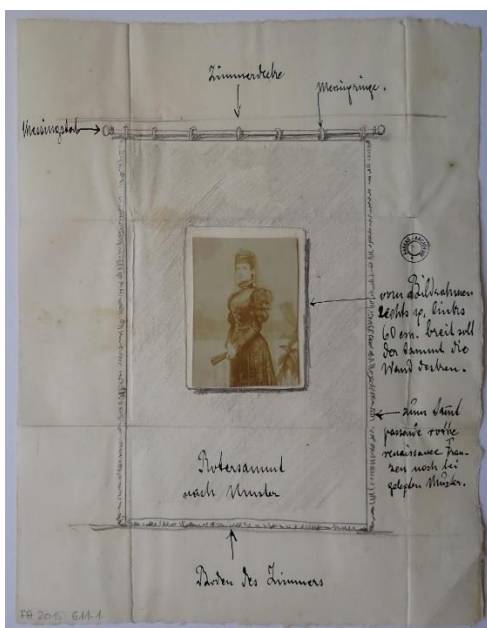 Zimmerdecke
Messingringe.
Messingstab
vom Bildrahmen
rechts u. links
60 cm. breit soll
der Sammt die
Wand decken.
zum Samt
passende rothe
renaissance Fran-
zen nach bei
gelegten Muster.
Rotersammt
nach Muster
Boden des Zimmers
FA 2015 611-1